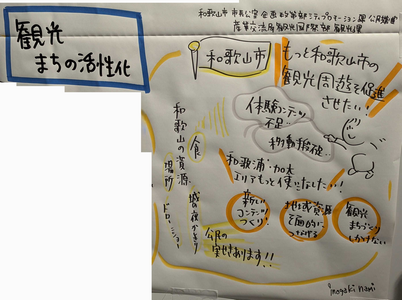 和歌山市 市長公室 企画政策部 シティプロモーション課 公民連携
産業交流局 観光国際部 観光課
観光
まちの活性化
和歌山市
もっと和歌山市の
観光周遊を促進
させたい!
体験コンテンツ
不足…
移動手段…
和歌浦・加太
エリアもっと使いこなしたい!
新しい
コンテンツ
づくり
地域資源
を面的に
つなげる
観光
まちづくり
しかけない
食
和歌山の資源
場所
城の夜
ドローンショー
公民の
実せきあります!!
inagaki nami